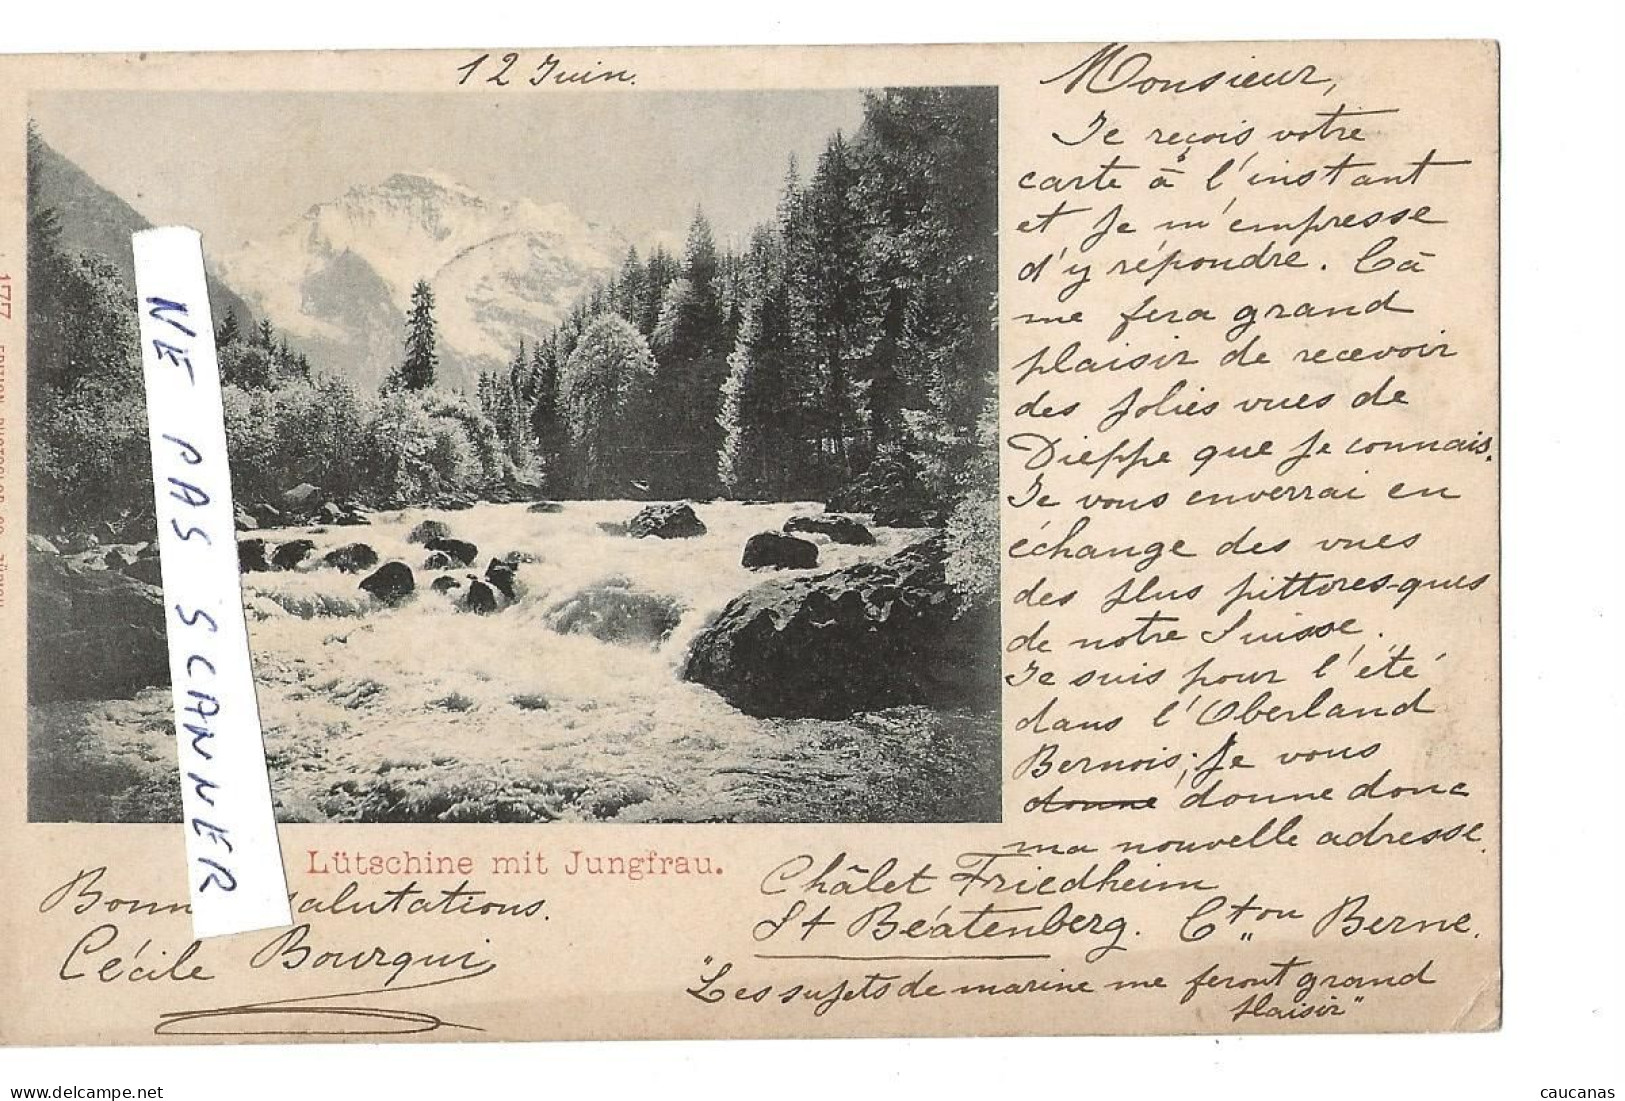 12 Juin.
Monsieur,
Je reçois votre
carte à l'instant
et je m'empresse
d'y répondre. Cà
me fera grand
plaisir de recevoir
des jolies vues de
Dieppe que je connais.
Je vous enverrai en
échange des vues
des plus pittores-ques
de notre Suisse.
Je suis pour l'été
dans l'Oberland
Bernois; je vous
donne donne donc
ma nouvelle adresse.
Châlet Friedheim
St Béatenberg. Cton Berne.
"Les sujets de marine me feront grand
plaisir"
Lütschine mit Jungfrau.
Bonn salutations.
Cécile Bourqui
NE PAS SCANNER
1777
https://www.delcampe.net
caucanas